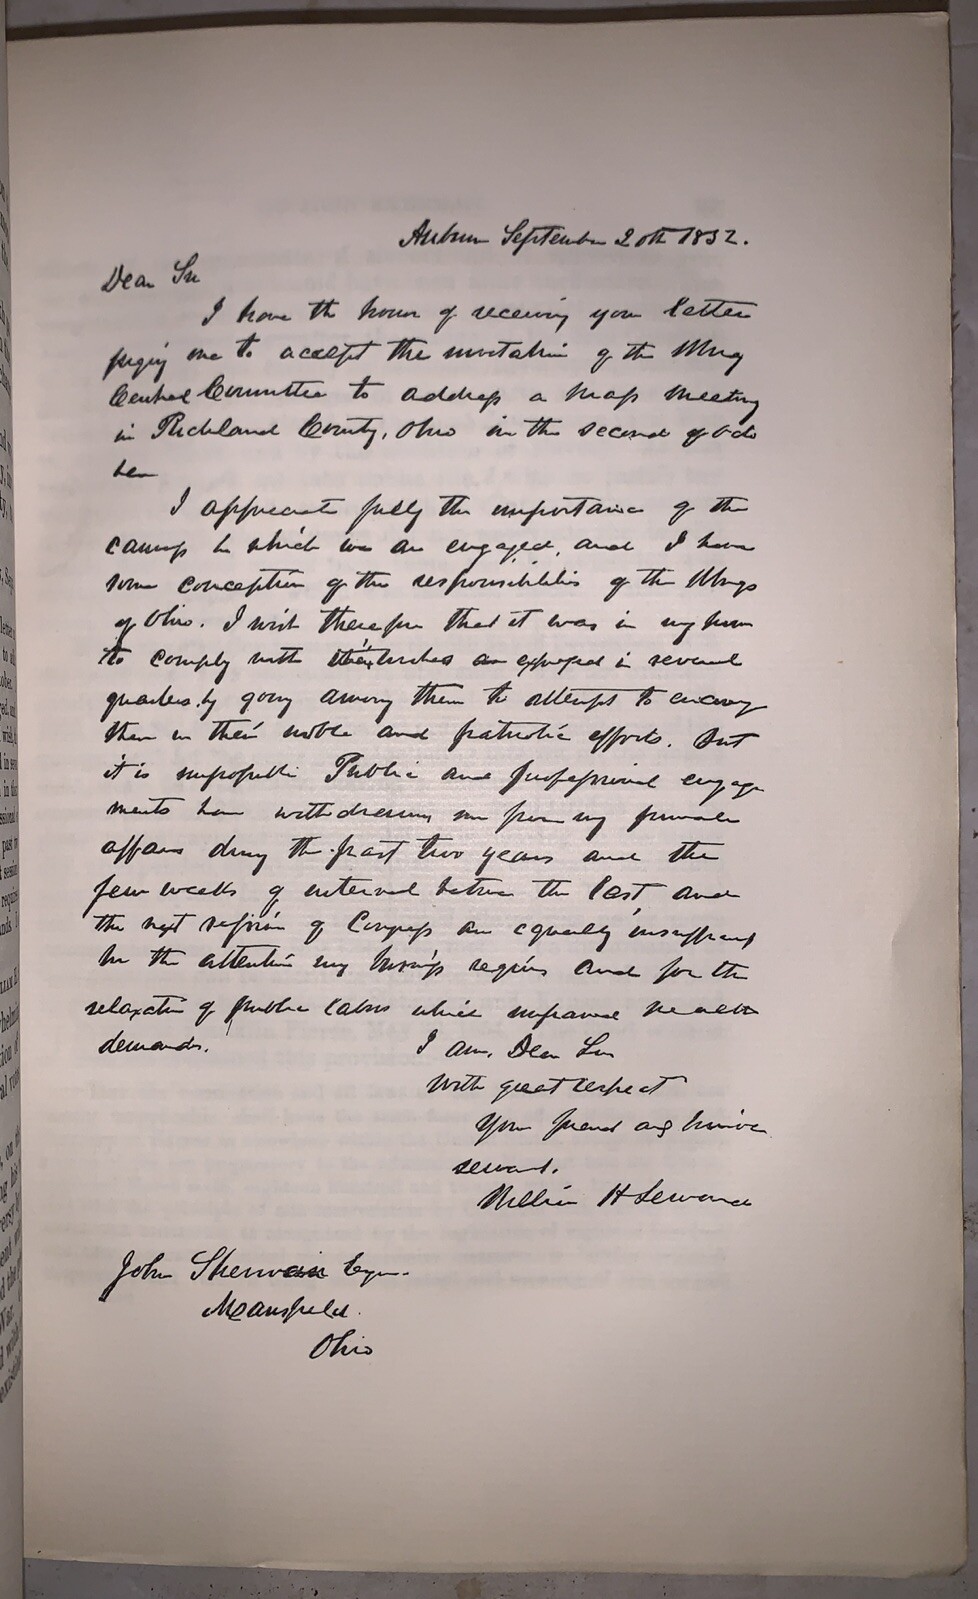 Auburn September 20th 1852.
Dear Sir
I have the honor of receiving your letter
urging me to accept the invitation of the Whig
Central Committee to address a Mass Meeting
in Richland County, Ohio in the second of Octo
ber
I appreciate fully the importance of the
campaign in which we are engaged, and I have
some conception of the responsibilities of the Whigs
of Ohio. I wish therefore that it was in my power
to comply with wishes expressed in several
quarters by going among them to attempt to encourage
them in their noble and patriotic efforts. But
it is impossible Public and professional engage
ments have withdrawn me from my private
affairs during the past two years and the
few weeks of interval between the last and
the next session of Congress are equally insufficient
for the attention my business requires and for the
relaxation of public labors which impaired health
demands.
I am, Dear Sir
With great respect
Your friend and humble
servant.
William H Seward
John Sherman Esqr.
Mansfield.
Ohio